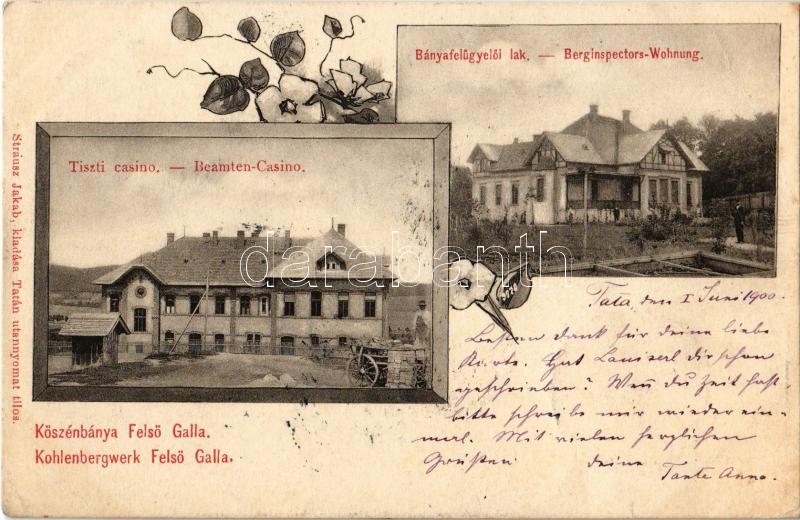 Bányafelügyelői lak. — Berginspectors-Wohnung.
Tiszti casino. — Beamten-Casino.
Strausz Jakab, kiadása Tatán utánnyomat tilos.
darabanth
Tata, den I Juni 1900.
Besten dank für deine liebe
Karte. Hat Lauiserl dir schon
geschrieben? Wen̄ du Zeit hast,
bitte schreibe mir wieder ein-
mal. Mit vielen herzlichen
Grüßen deine
Tante Anna.
Kőszénbánya Felső Galla.
Kohlenbergwerk Felső Galla.